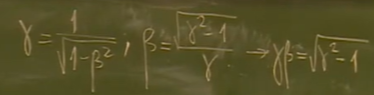 γ = 1/√(1-β²) ; β = √(γ²-1)/γ → γβ = √(γ²-1)